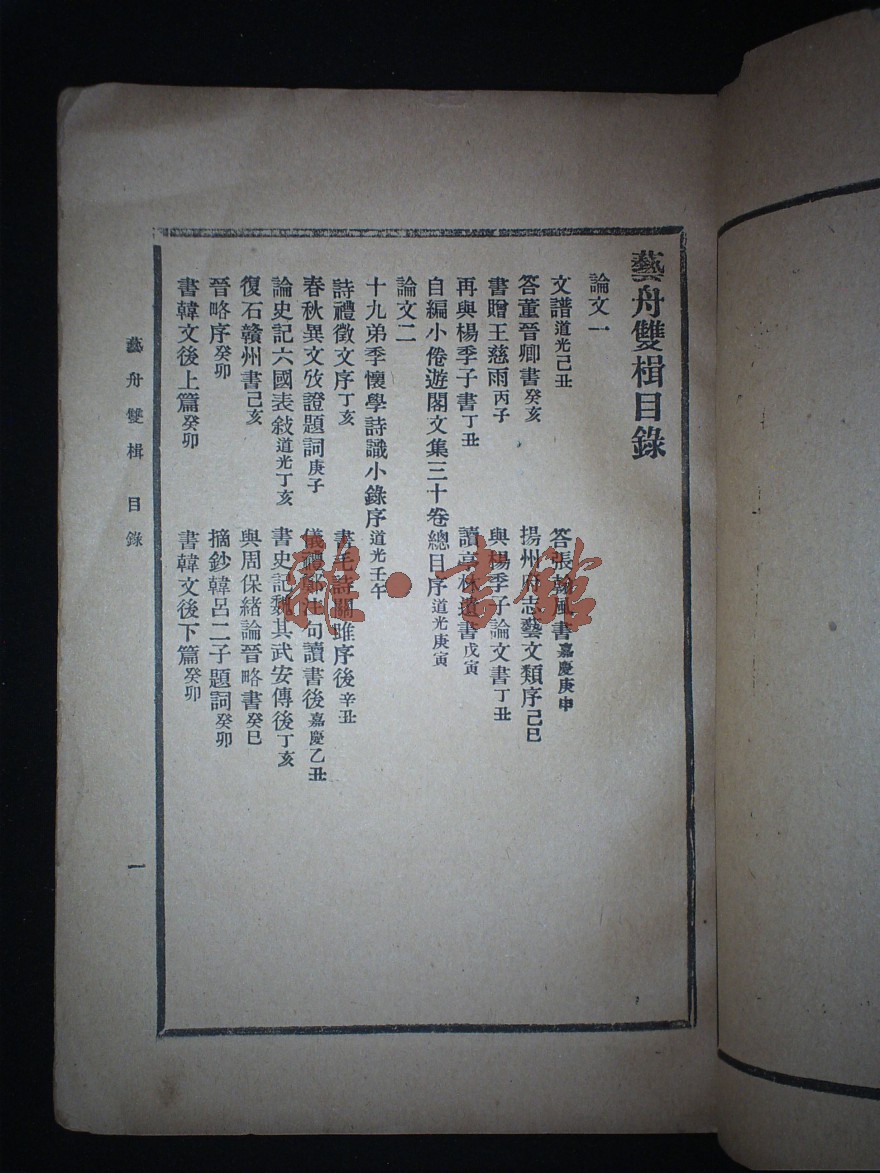 藝舟雙楫目錄
論文一
文譜道光己丑
答張翰風書嘉慶庚申
答董晉卿書癸亥
揚州府志藝文類序己巳
書贈王慈雨丙子
與楊季子論文書丁丑
再與楊季子書丁丑
讀亭林遺書戊寅
自編小倦遊閣文集三十卷總目序道光庚寅
論文二
十九弟季懷學詩識小錄序道光壬午
詩禮徵文序丁亥
書毛詩關雎序後辛丑
春秋異文攷證題詞庚子
儀禮鄭注句讀書後嘉慶乙丑
論史記六國表敘道光丁亥
書史記魏其武安傳後丁亥
復石贛州書己亥
與周保緒論晉略書癸巳
晉略序癸卯
摘鈔韓呂二子題詞癸卯
書韓文後上篇癸卯
書韓文後下篇癸卯
藝舟雙楫 目錄
一
雜·書館